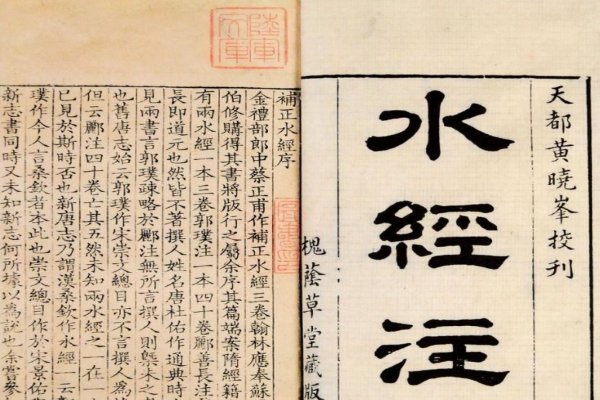 天都黄曉峯挍刊
水經注
槐蔭草堂藏版
補正水經序
金禮部郎中蔡正甫作補正水經三卷翰林應奉蘇
伯修購得其書將版行之屬余序其篇端案隋經籍
有兩水經一本三卷郭璞注一本四十卷酈善長注
長即道元也然皆不著撰人姓名唐杜佑作通典時
見兩書言郭璞疎略於酈注無所言撰人則槩未之
也舊唐志始云郭璞作宋崇文總目亦不言撰人為
但云酈注四十卷亡其五然未知兩水經之一在
已見於斯時否也新唐志乃謂漢桑欽作水經一云
璞作今人言桑欽者本此也崇文總目作於宋景佑
新志書同時又未知新志何所據以為說也余嘗參